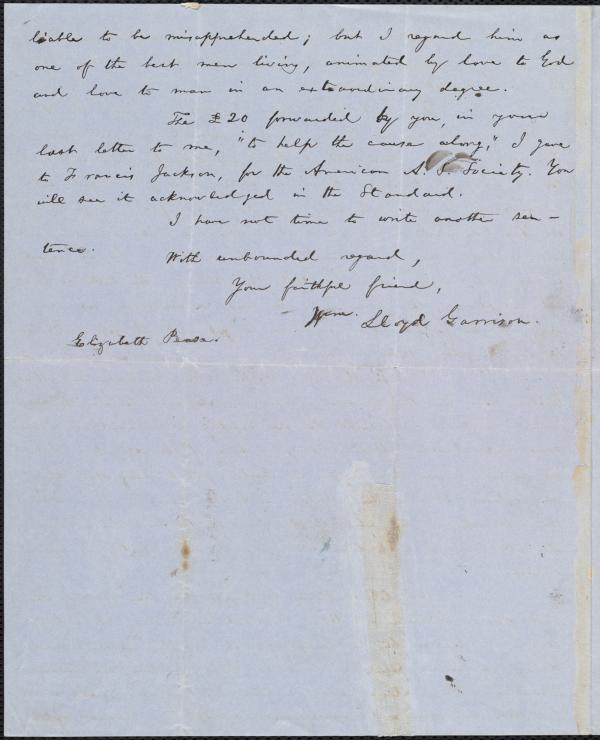 liable to be misapprehended; but I regard him as
one of the best men living, animated by love to God
and love to man in an extraordinary degree.
The £20 forwarded by you, in your
last letter to me, "to help the cause along," I gave
to Francis Jackson, for the American A. S. Society. You
will see it acknowledged in the Standard.
I have not time to write another sen-
tence.
With unbounded regard,
Your faithful friend,
Wm. Lloyd Garrison.
Elizabeth Pease.